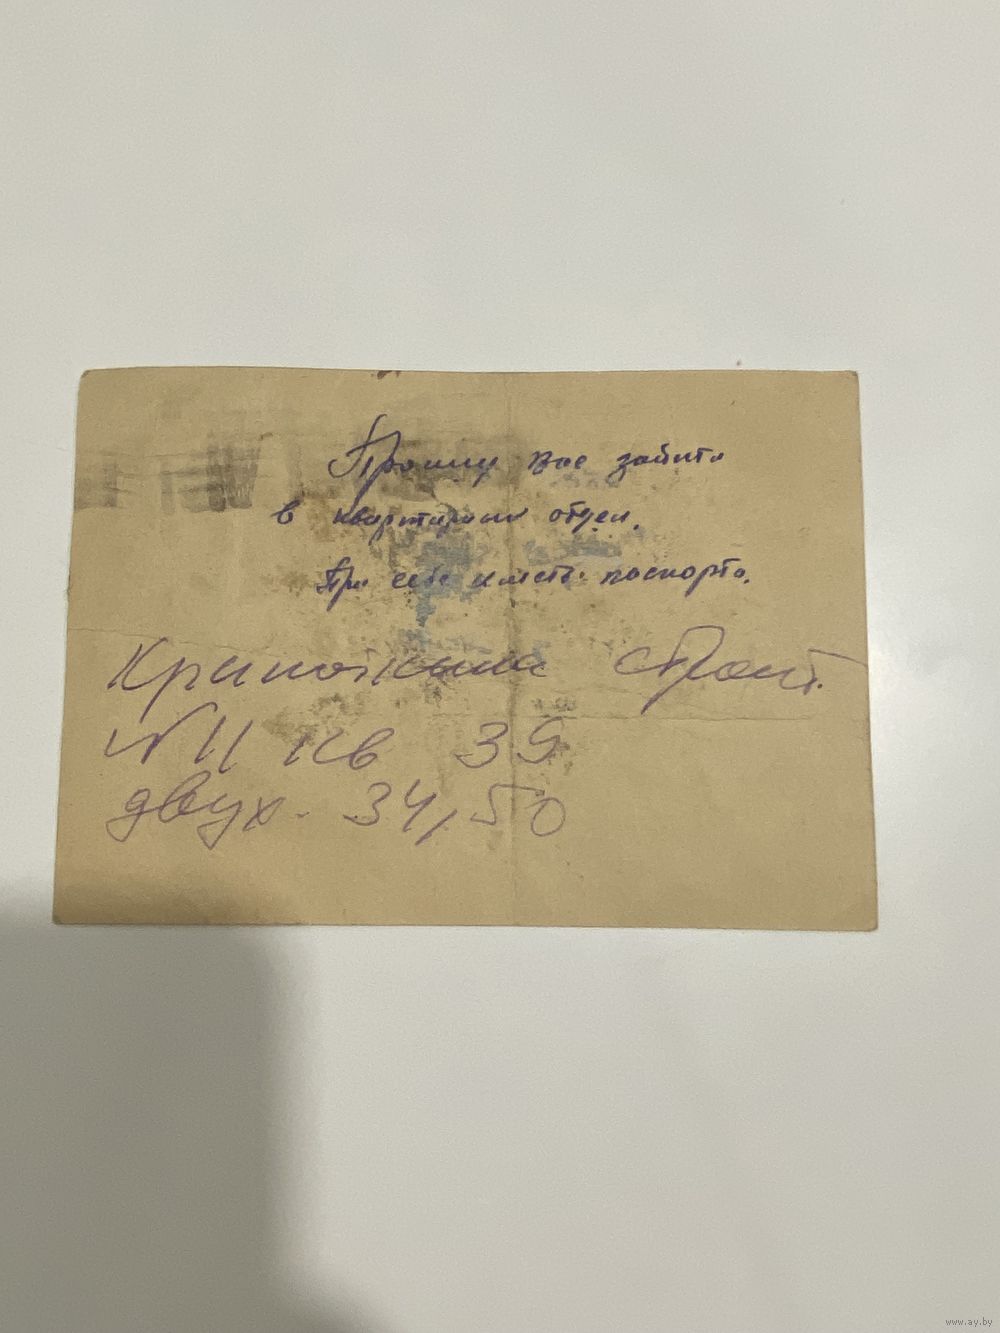 Прошу Вас зайти
в квартирный отдел.
При себе иметь паспорта.
строит.
№ 11 кв 39
двух. 34,50
www.ay.by